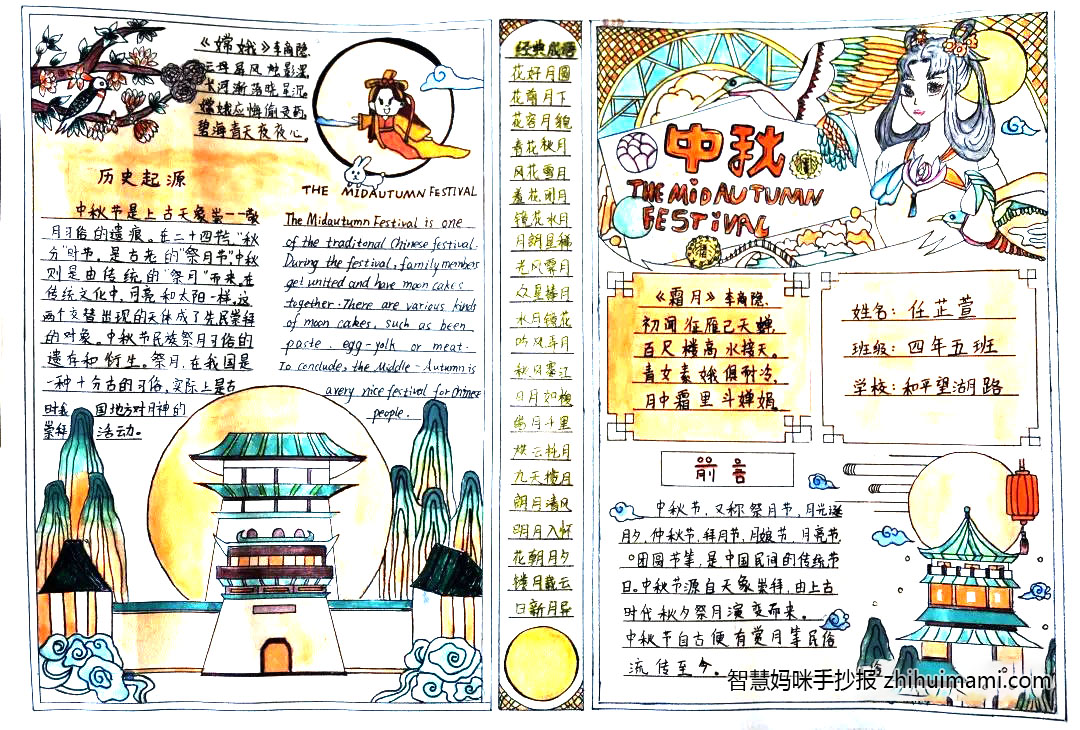 《嫦娥》李商隐
云母屏风烛影深
长河渐落晓星沉
嫦娥应悔偷灵药
碧海青天夜夜心
历史起源
中秋节是上古天象崇一一敬
月习俗的遗痕。在二十四节,“秋
分”时节,是古老的“祭月节”中秋
则是由传统的“祭月”而来。在
传统文化中,月亮和太阳一样,这
两个交替出现的天体成了先民崇拜
的对象。中秋节民族祭月习俗的
遗存和衍生。祭月,在我国是
一种十分古的习俗,实际上是古
时我国地方对月神的
崇拜活动。
THE MIDAUTUMN FESTIVAL
The Midautumn Festival is one
of the traditonal Chinese festival.
During the festival, family members
get united and have moon cakes
together. There are various kinds
of moon cakes, such as been
paste, egg-yolh or meat.
To conclude, the Middle-Autumn is
avery nice festival for Chinese
people.
经典成语
花好月圆
花前月下
花容月貌
春花秋月
风花雪月
羞花闭月
镜花水月
月朗星稀
光风霁月
众星捧月
水月镜花
吟风弄月
秋月寒江
日月如梭
烘云托月
九天揽月
朗月清风
明月入怀
花朝月夕
镂月裁云
日新月异
中秋
THE MID AUTUMN
FESTIVAL
《霜月》李商隐
初闻征雁已天蝉
百尺楼高水接天。
青女素娥俱耐冷,
月中霜里斗婵娟。
姓名:任芷萱
班级:四年五班
学校:和平望湖路
前言
中秋节,又称祭月节,月光诞
月夕,仲秋节,拜月节,月娘节,月亮节
团圆节等,是中国民间的传统节
日。中秋节源自天象崇拜,由上古
时代秋夕祭月演变而来。
中秋节自古便有赏月等民俗
流传至今。
智慧妈咪手抄报 zhihuimami.com